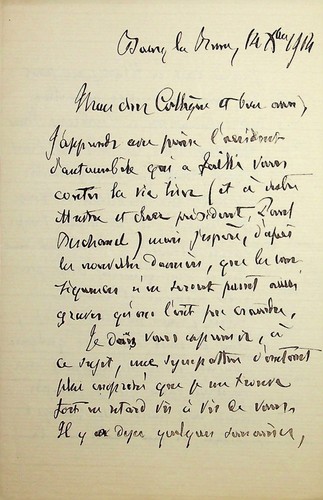 Bourg la Reine, 14 Xbre 1914
Mon cher Collègue et bon ami,
J'apprends avec peine l'accident
d'automobile qui a failli vous
coûter la vie hier (et à notre
illustre et cher président, Paul
Deschanel) mais j'espère, d'après
les nouvelles dernières, que les con-
séquences n'en seront point aussi
graves qu'on l'eût pu craindre.
Je dois vous exprimer, à
ce sujet, une sympathie d'autant
plus empressée que je me trouve
fort en retard vis à vis de vous.
Il y a déjà quelques semaines,